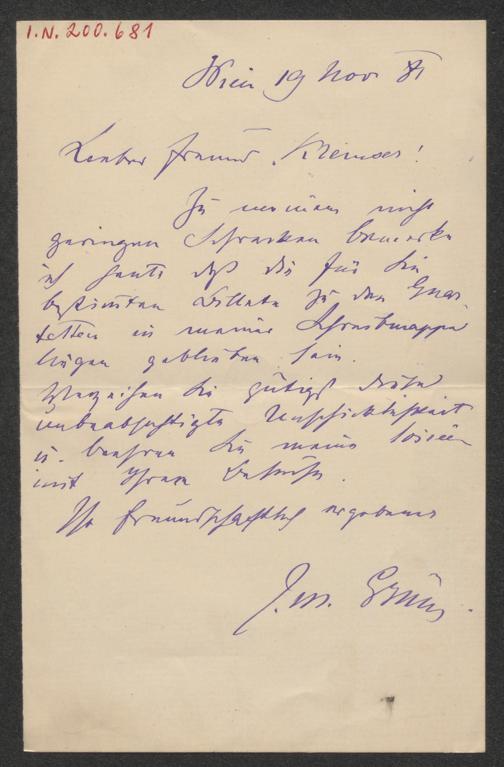 I.N. 200.681
Wien 19 Nov 81
Lieber Freund Kremser!
Zu meinem nicht
geringen Schrecken bemerke
ich heute daß die für Sie
bestimten Billete zu den Quar-
tetten in meiner Schreibmappe
liegen geblieben sein.
Verzeihen Sie gütigst diese
unbeabsichtigte Unschicklichkeit
u. beehren Sie meine Soiréen
mit Ihrem Besuche.
Ihr freundschaftlich ergebener
J. M. Grün.